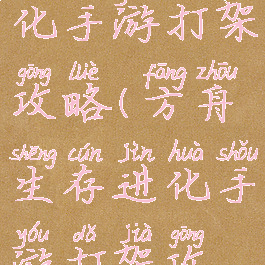 化手游打架
gōng lüè fāng zhōu
攻略(方舟
shēng cún jìn huà shǒu
生存进化手
yóu dǎ jià gōng
游打架攻